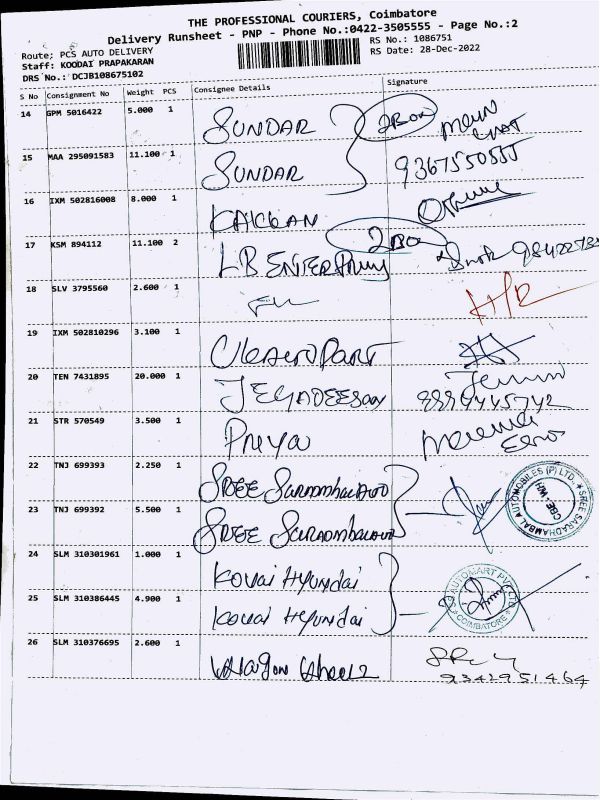 THE PROFESSIONAL COURIERS, Coimbatore
Delivery Runsheet - PNP - Phone No.:0422-3505555 - Page No.:2
Route: PCS AUTO DELIVERY
RS No.: 1086751
Staff: KOODAI PRAPAKARAN
RS Date: 28-Dec-2022
DRS No.: DCJB108675102
S No Consignment No Weight PCS Consignee Details Signature
14 GPM 5016422 5.000 1 SUNDAR
15 MAA 295091583 11.100 1 SUNDAR 9367550555
16 IXM 502816008 8.000 1
17 KSM 894112 11.100 2 LB ENTERPRISES
18 SLV 3795560 2.600 1 H/R
19 IXM 502810296 3.100 1
20 TEN 7431895 20.000 1 JEGADEESAN
21 STR 570549 3.500 1 Preya
22 TNJ 699393 2.250 1 SREE
SREE SARADHAMBAL AUTOMOBILES (P) LTD. CBE-WH
23 TNJ 699392 5.500 1 SREE
24 SLM 310301961 1.000 1 KOVAI HYUNDAI
25 SLM 310386445 4.900 1 KOVAI HYUNDAI
AUTOMART PVT LTD COIMBATORE
26 SLM 310376695 2.600 1 Wagon Wheels
9342951464